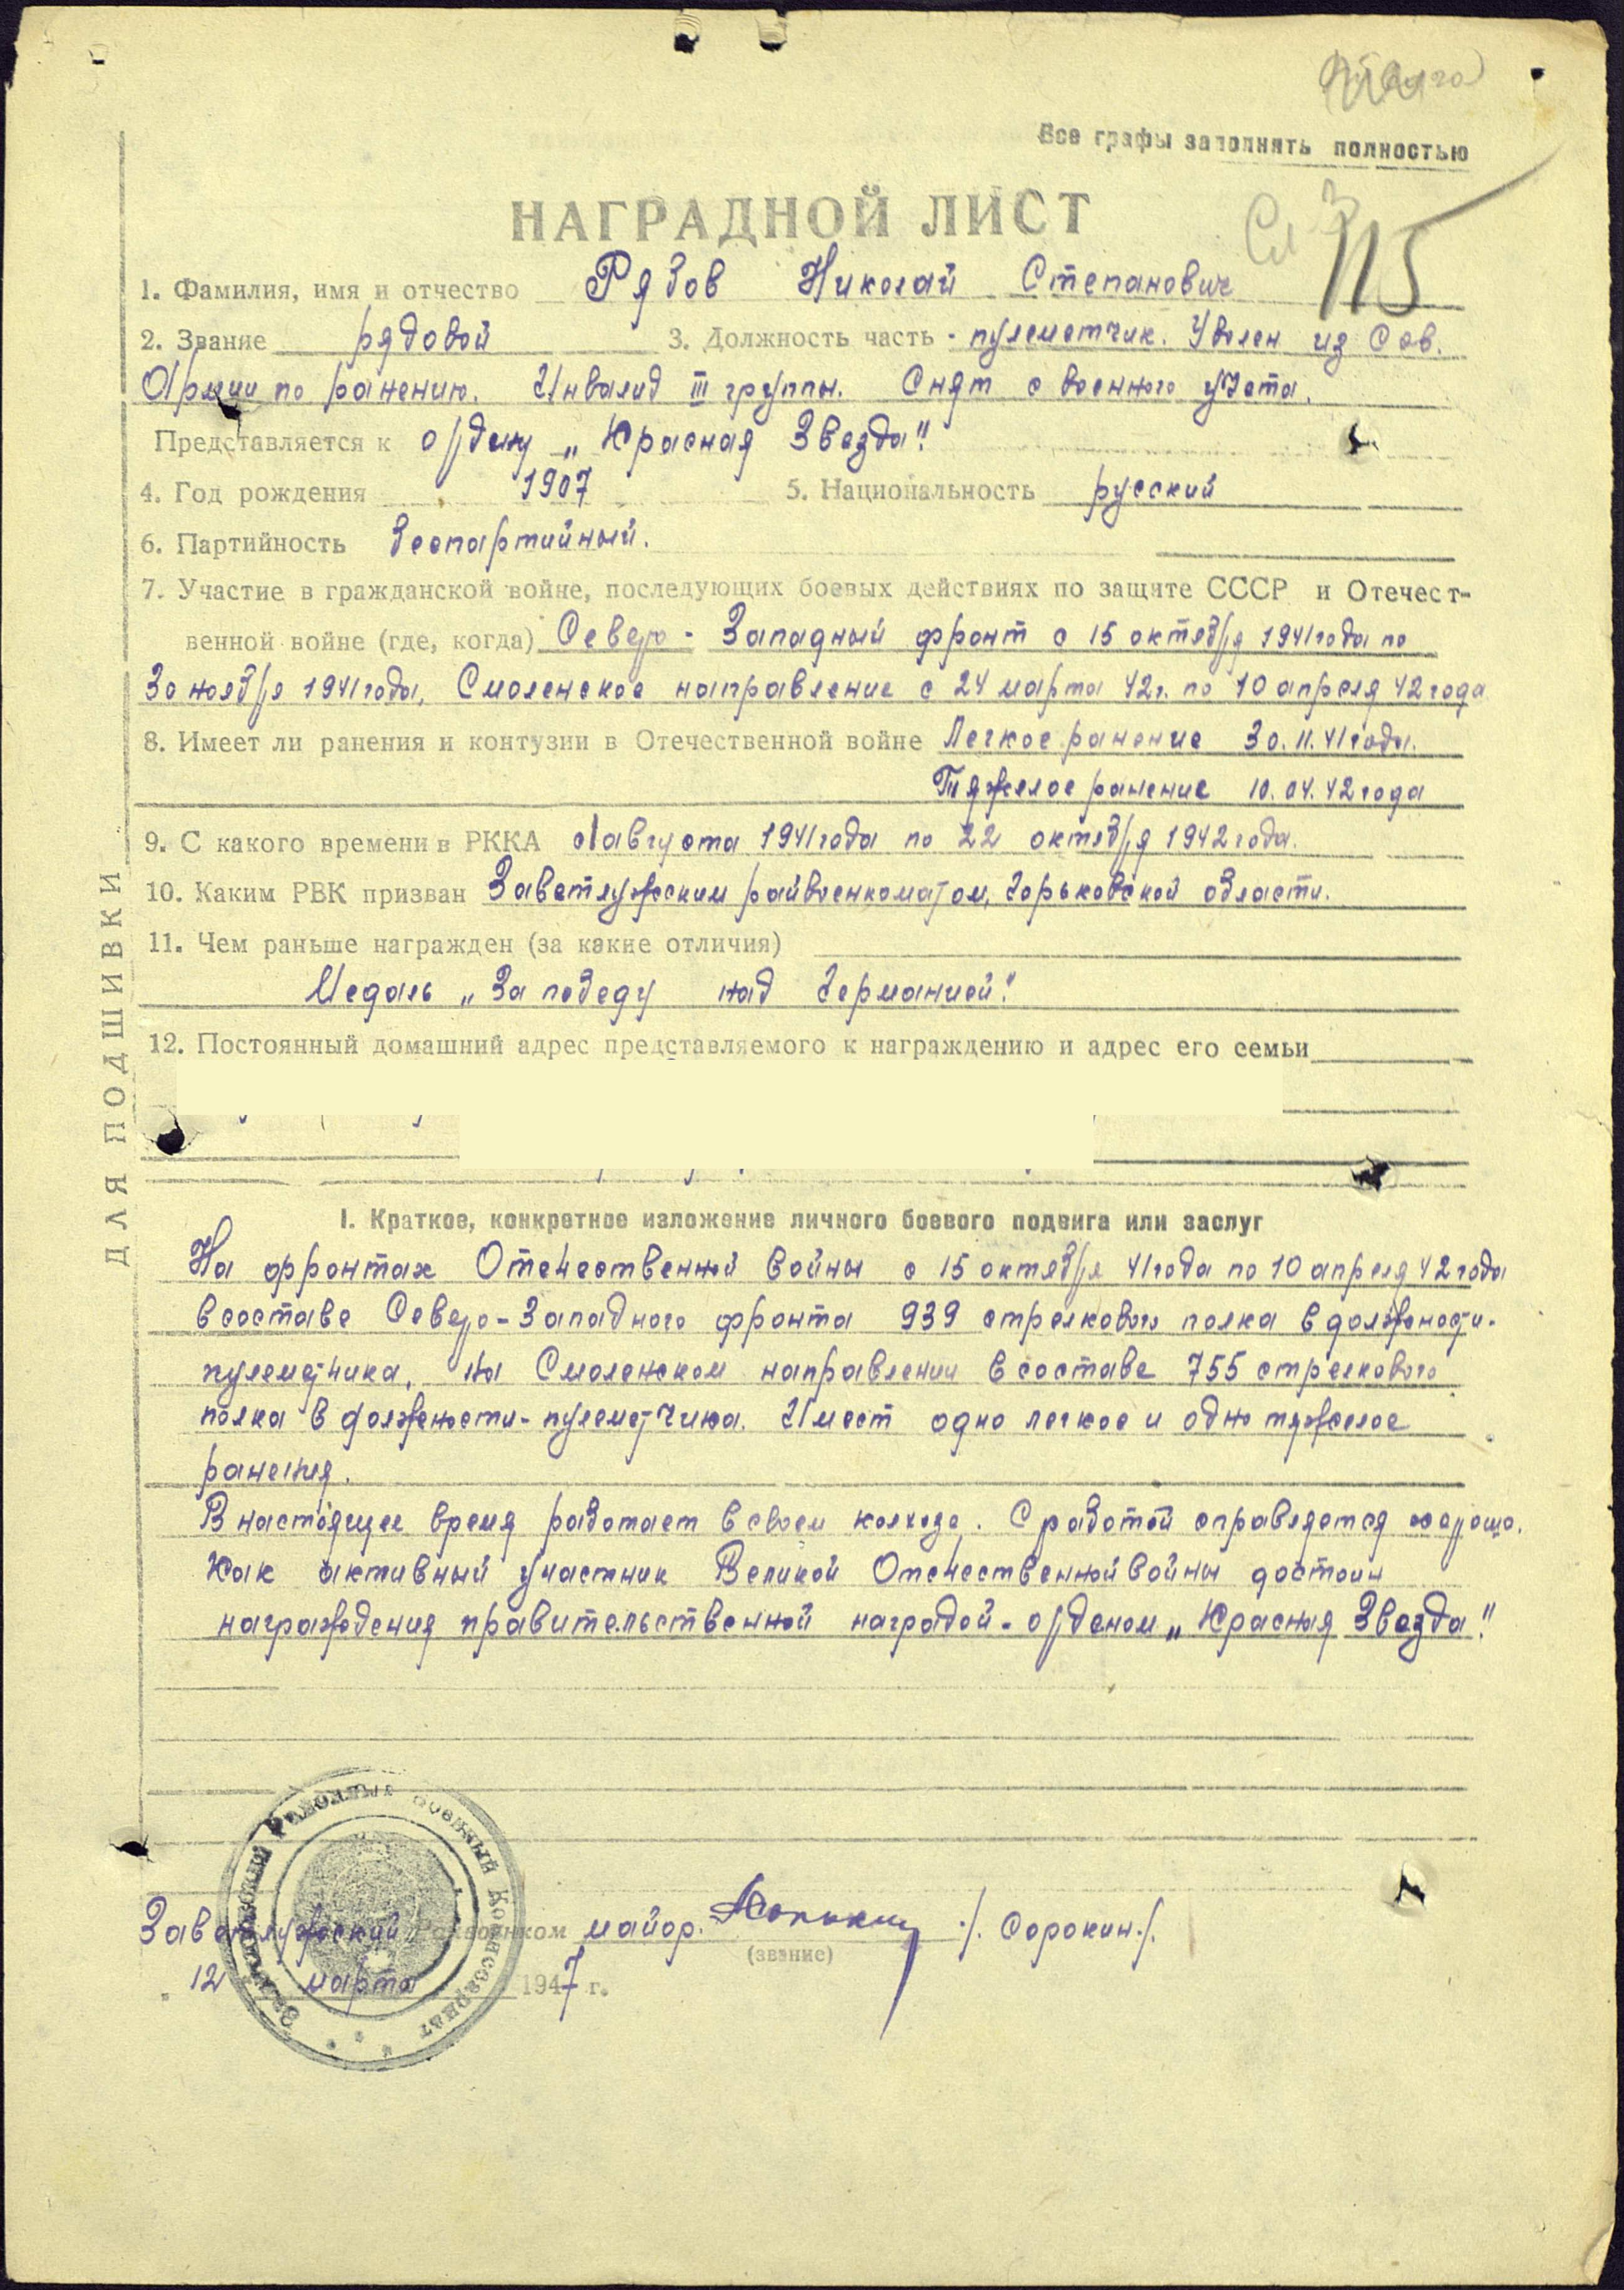 Все графы заполнять полностью
НАГРАДНОЙ ЛИСТ
Сл 3
115
1. Фамилия, имя и отчество Рябов Николай Степанович
2. Звание рядовой 3. Должность часть - пулеметчик. Уволен из Сов.
Армии по ранению. Инвалид III группы. Снят с военного учета.
Представляется к ордену „Красная Звезда".
4. Год рождения 1907 5. Национальность русский
6. Партийность беспартийный.
7. Участие в гражданской войне, последующих боевых действиях по защите СССР и Отечест-
венной войне (где, когда) Северо-Западный фронт с 15 октября 1941 года по
30 ноября 1941 года, Смоленское направление с 24 марта 42 г. по 10 апреля 42 года
8. Имеет ли ранения и контузии в Отечественной войне Легкое ранение 30.11.41 года.
Тяжелое ранение 10.04.42 года
9. С какого времени в РККА с 1 августа 1941 года по 22 октября 1942 года.
10. Каким РВК призван Заветлужским райвоенкоматом, Горьковской области.
11. Чем раньше награжден (за какие отличия)
Медаль „За победу над Германией".
12. Постоянный домашний адрес представляемого к награждению и адрес его семьи
ДЛЯ ПОДШИВКИ
I. Краткое, конкретное изложение личного боевого подвига или заслуг
На фронтах Отечественной войны с 15 октября 41 года по 10 апреля 42 года
в составе Северо-Западного фронта 939 стрелкового полка в должности-
пулеметчика, на Смоленском направлении в составе 755 стрелкового
полка в должности-пулеметчика. Имеет одно легкое и одно тяжелое
ранения.
В настоящее время работает в своем колхозе. С работой справляется хорошо.
Как активный участник Великой Отечественной войны достоин
награждения правительственной наградой-орденом „Красная Звезда".
Заветлужский Райвоенком майор. /. Сорокин./.
(звание)
12 марта 1947 г.
Заветлужский Районный Военный Комиссариат